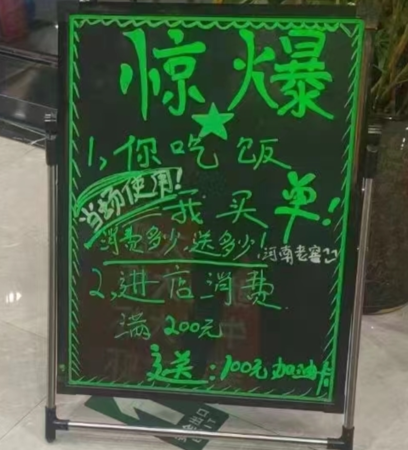 惊爆
1,你吃饭
当场使用!
我买单!
消费多少,送多少!
河南老窖
2,进店消费
满200元
立送:100元加油卡